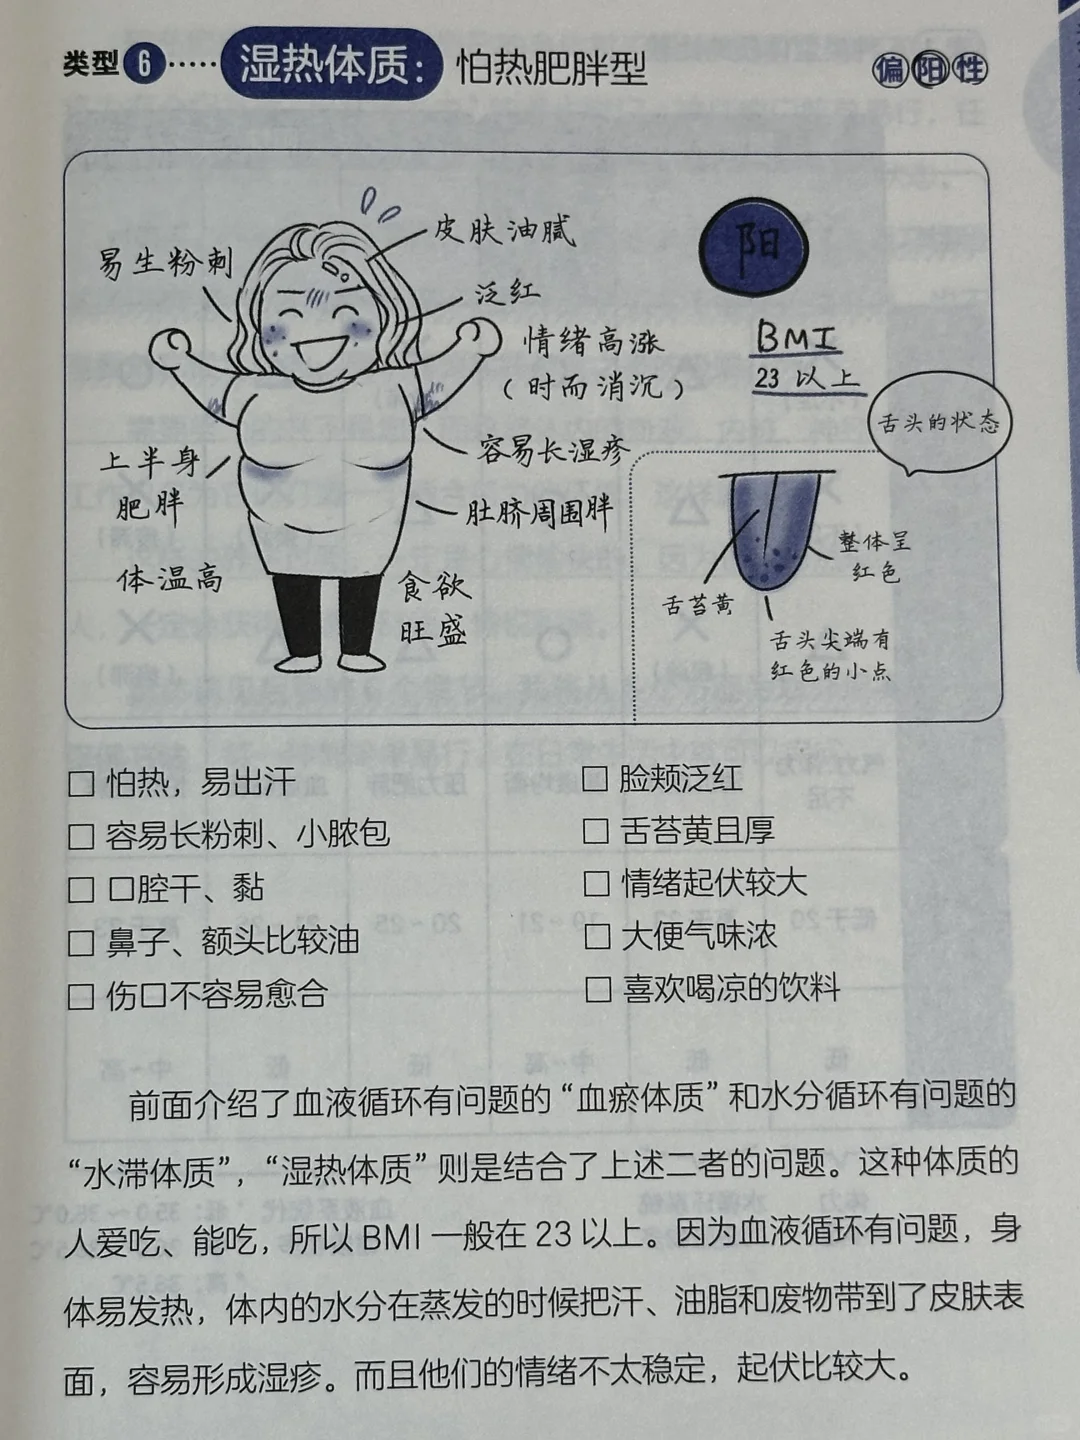 类型6……湿热体质：怕热肥胖型 偏阳性
皮肤油腻
易生粉刺
泛红
阳
情绪高涨
（时而消沉）
BMI
23 以上
舌头的状态
上半身
肥胖
容易长湿疹
肚脐周围胖
体温高
食欲
旺盛
整体呈
红色
舌苔黄
舌头尖端有
红色的小点
□ 怕热，易出汗
□ 容易长粉刺、小脓包
□ 口腔干、黏
□ 鼻子、额头比较油
□ 伤口不容易愈合
□ 脸颊泛红
□ 舌苔黄且厚
□ 情绪起伏较大
□ 大便气味浓
□ 喜欢喝凉的饮料
前面介绍了血液循环有问题的“血瘀体质”和水分循环有问题的
“水滞体质”，“湿热体质”则是结合了上述二者的问题。这种体质的
人爱吃、能吃，所以 BMI 一般在 23 以上。因为血液循环有问题，身
体易发热，体内的水分在蒸发的时候把汗、油脂和废物带到了皮肤表
面，容易形成湿疹。而且他们的情绪不太稳定，起伏比较大。